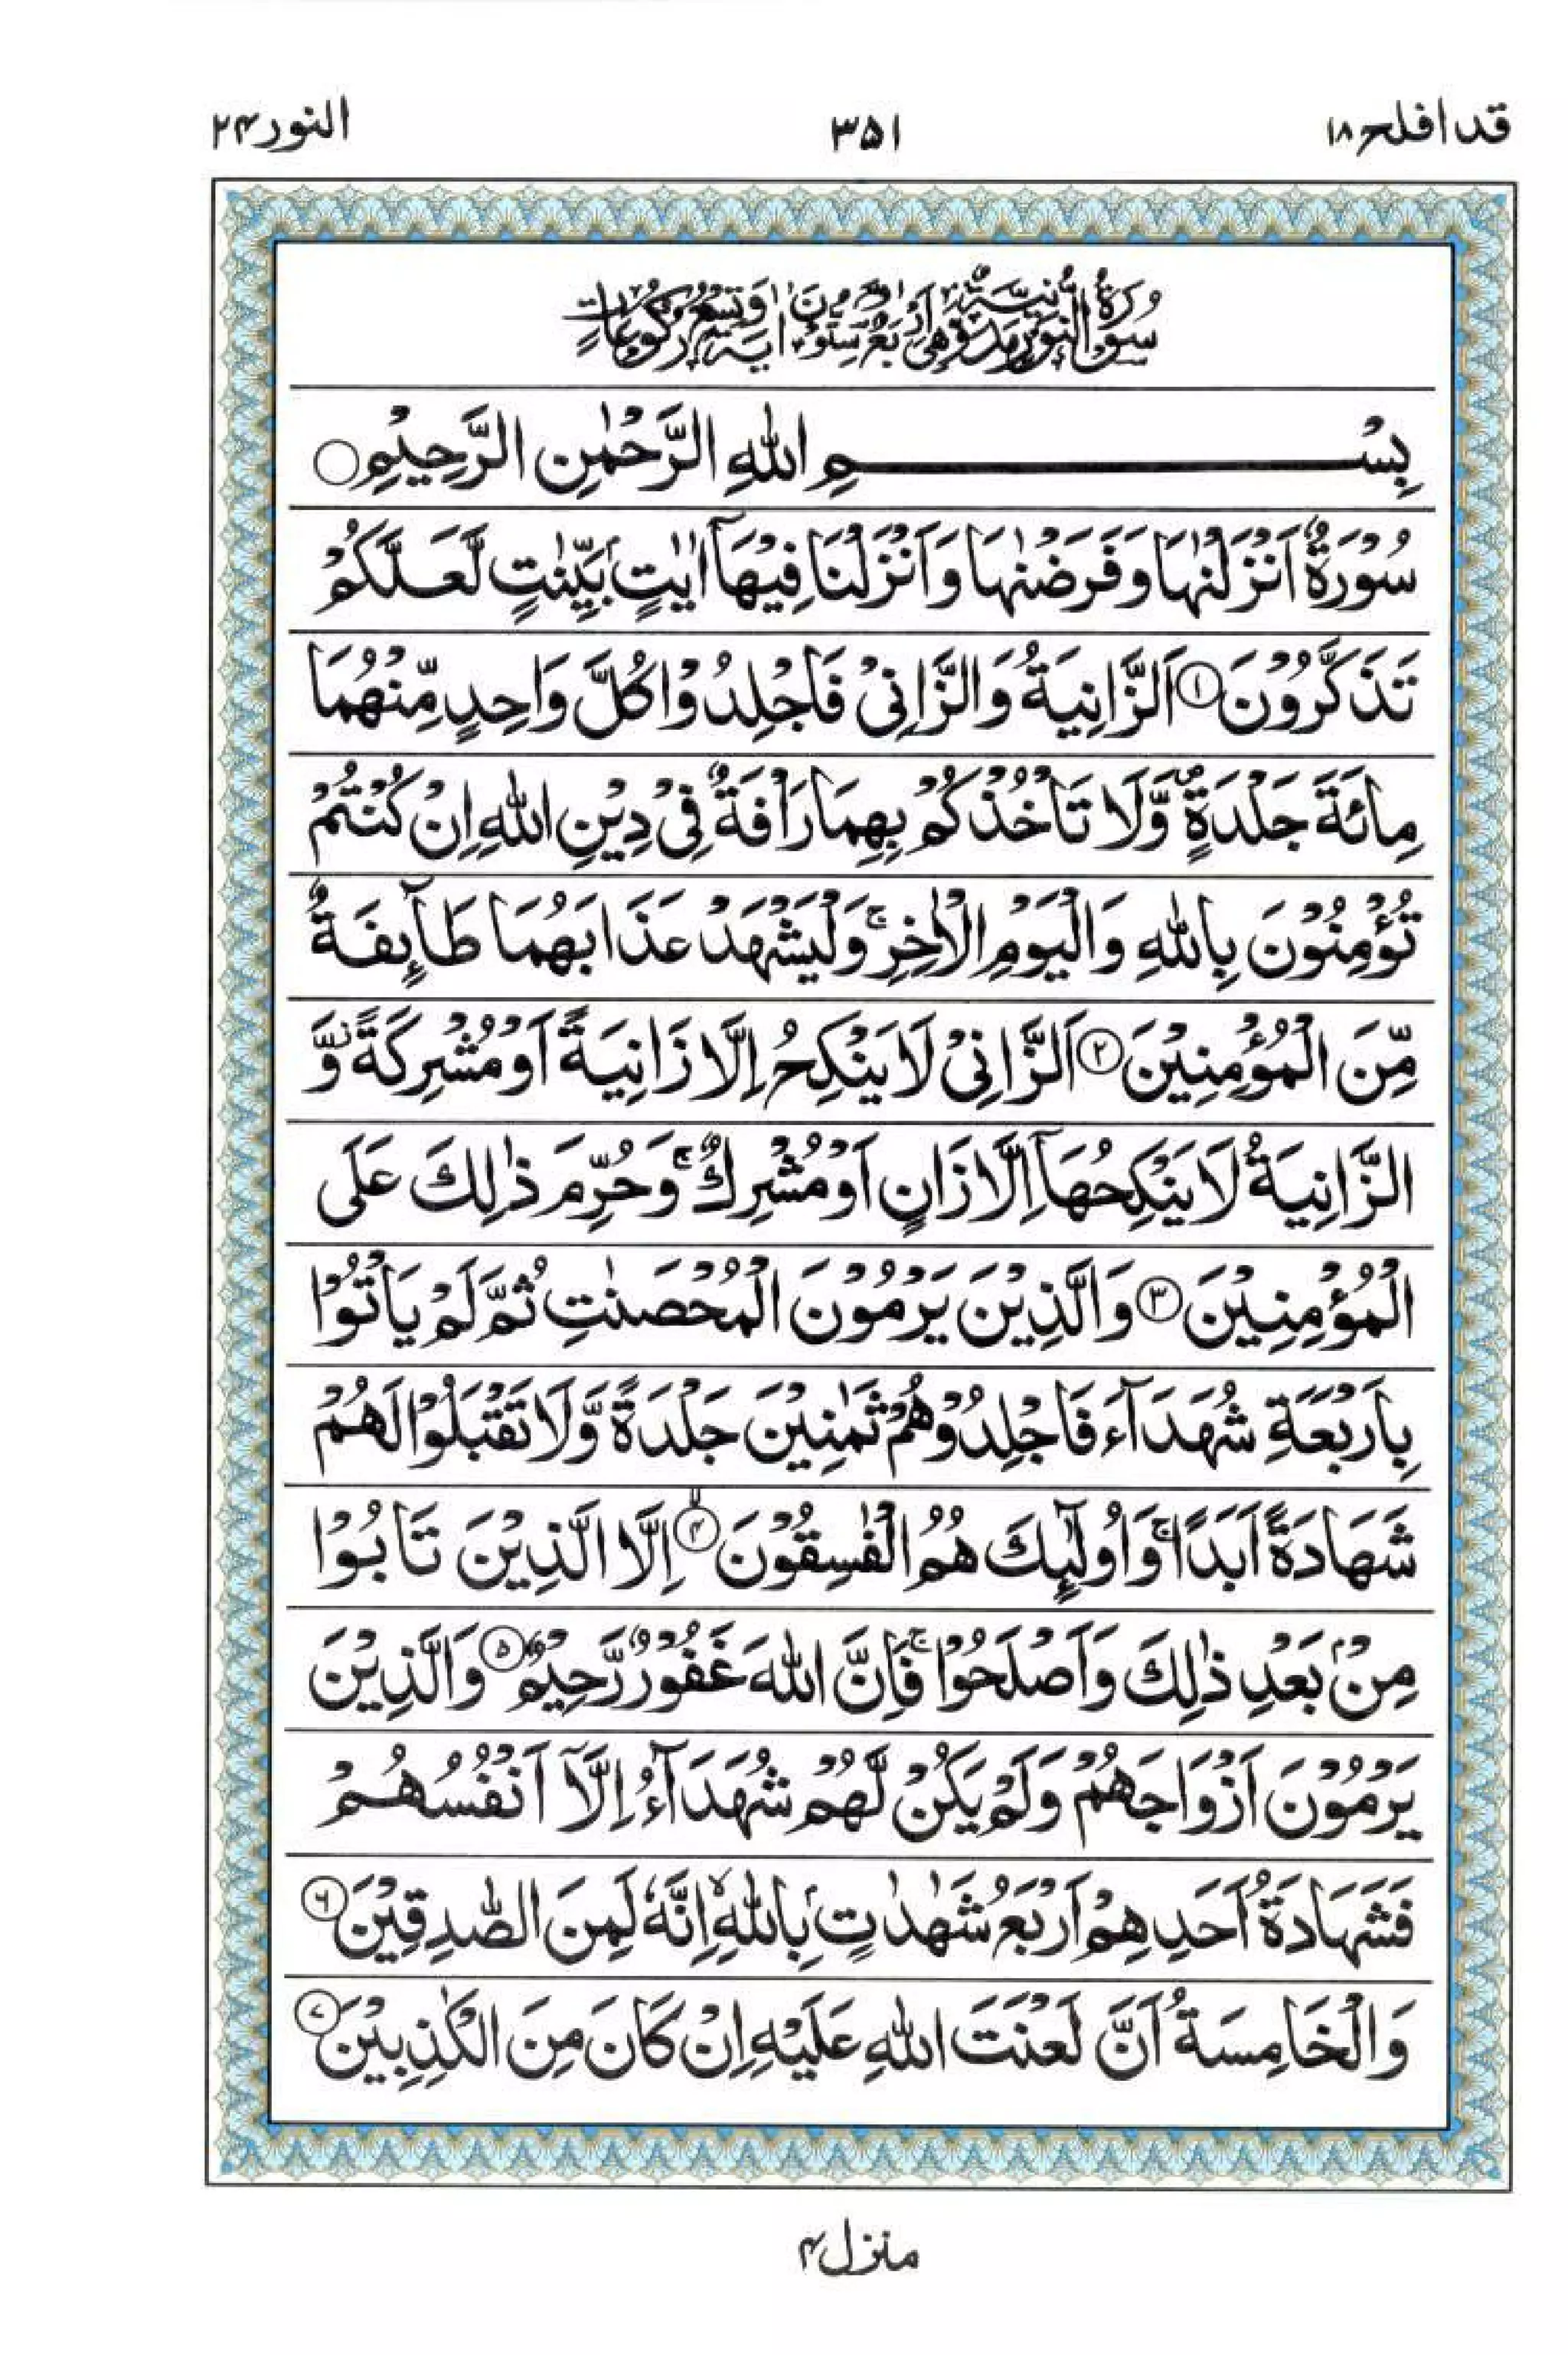 قد افلح ۱۸ ۳۵۱ النور ۲۴
سُوْرَةُ النُّوْرِ مَدَنِيَّةٌ وَّهِيَ اَرْبَعٌ وَّسِتُّوْنَ اٰيَةً وَّتِسْعُ رُكُوْعَاتٍ
بِسْمِ اللّٰهِ الرَّحْمٰنِ الرَّحِيْمِ ○
سُوْرَةٌ اَنْزَلْنٰهَا وَفَرَضْنٰهَا وَاَنْزَلْنَا فِيْهَاۤ اٰيٰتٍۭ بَيِّنٰتٍ لَّعَلَّكُمْ
تَذَكَّرُوْنَ ① اَلزَّانِيَةُ وَالزَّانِيْ فَاجْلِدُوْا كُلَّ وَاحِدٍ مِّنْهُمَا
مِائَةَ جَلْدَةٍ ۪ وَّلَا تَاْخُذْكُمْ بِهِمَا رَاْفَةٌ فِيْ دِيْنِ اللّٰهِ اِنْ كُنْتُمْ
تُؤْمِنُوْنَ بِاللّٰهِ وَالْيَوْمِ الْاٰخِرِ ۚ وَلْيَشْهَدْ عَذَابَهُمَا طَآئِفَةٌ
مِّنَ الْمُؤْمِنِيْنَ ② اَلزَّانِيْ لَا يَنْكِحُ اِلَّا زَانِيَةً اَوْ مُشْرِكَةً ؗ وَّ
الزَّانِيَةُ لَا يَنْكِحُهَاۤ اِلَّا زَانٍ اَوْ مُشْرِكٌ ۚ وَحُرِّمَ ذٰلِكَ عَلَى
الْمُؤْمِنِيْنَ ③ وَالَّذِيْنَ يَرْمُوْنَ الْمُحْصَنٰتِ ثُمَّ لَمْ يَاْتُوْا
بِاَرْبَعَةِ شُهَدَآءَ فَاجْلِدُوْهُمْ ثَمٰنِيْنَ جَلْدَةً وَّلَا تَقْبَلُوْا لَهُمْ
شَهَادَةً اَبَدًا ۚ وَاُولٰٓئِكَ هُمُ الْفٰسِقُوْنَ ④ اِلَّا الَّذِيْنَ تَابُوْا
مِنْۢ بَعْدِ ذٰلِكَ وَاَصْلَحُوْا ۚ فَاِنَّ اللّٰهَ غَفُوْرٌ رَّحِيْمٌ ⑤ وَالَّذِيْنَ
يَرْمُوْنَ اَزْوَاجَهُمْ وَلَمْ يَكُنْ لَّهُمْ شُهَدَآءُ اِلَّاۤ اَنْفُسُهُمْ
فَشَهَادَةُ اَحَدِهِمْ اَرْبَعُ شَهٰدٰتٍۭ بِاللّٰهِ ۙ اِنَّهٗ لَمِنَ الصّٰدِقِيْنَ ⑥
وَالْخَامِسَةُ اَنَّ لَعْنَتَ اللّٰهِ عَلَيْهِ اِنْ كَانَ مِنَ الْكٰذِبِيْنَ ⑦
منزل ۴